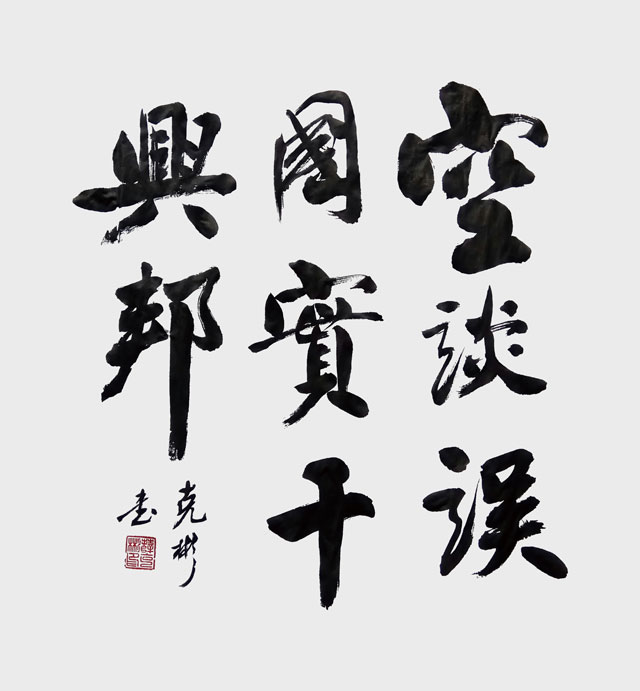 空談誤
國實干
興邦
克彬
书